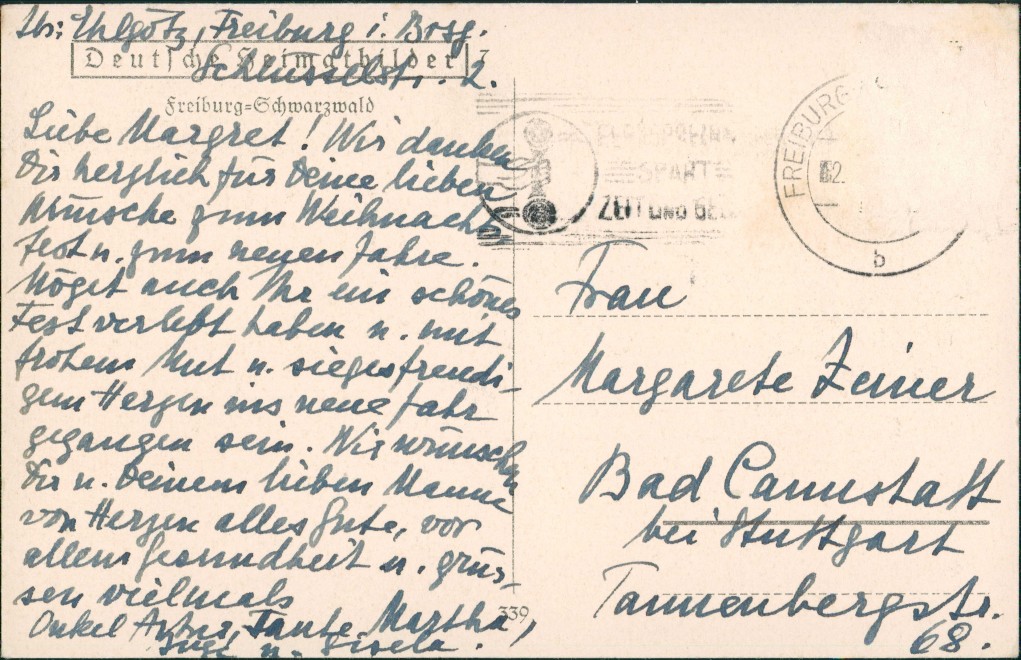 Ehlgötz, Freiburg i. Brsg.
Deutsche Heimatbilder
Schlüsselstr. 2.
Freiburg=Schwarzwald
Liebe Margret! Wir danken
Dir herzlich für Deine lieben
Wünsche zum Weihnachts
fest u. zum neuen Jahre.
Möget auch Ihr ein schönes
Fest verlebt haben u. mit
frohem Mut u. siegesfreudi-
gem Herzen ins neue Jahr
gegangen sein. Wir wünschen
Dir u. Deinem lieben Manne
von Herzen alles Gute, vor
allem Gesundheit u. grüs-
sen vielmals
Onkel Tante Martha,
u. Gisela.
339
SPART
ZEIT UND GE
FREIBURG
b
Frau
Margarete Zeiner
Bad Cannstatt
bei Stuttgart
Tannenbergstr.
68.